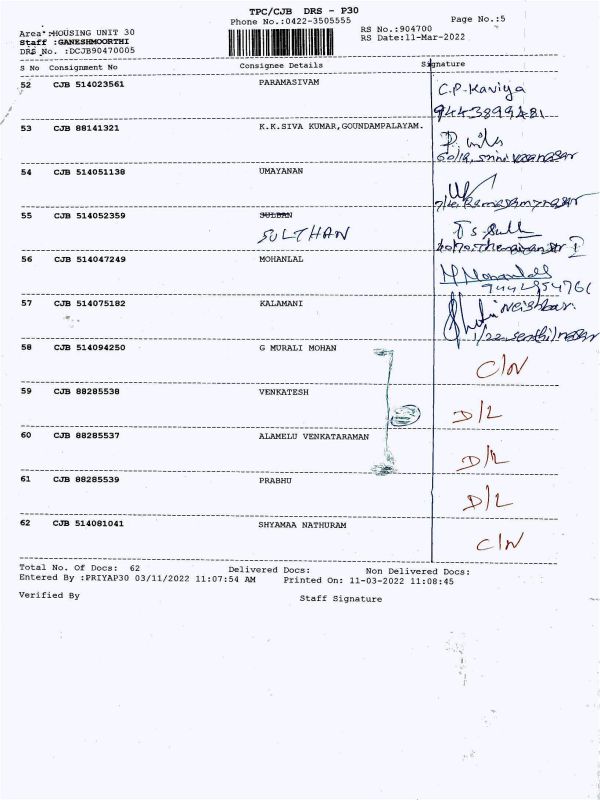 TPC/CJB DRS - P30
Phone No.:0422-3505555
Page No.:5
Area :HOUSING UNIT 30
Staff :GANESHMOORTHI
DRS No. :DCJB90470005
RS No.:904700
RS Date:11-Mar-2022
S No Consignment No Consignee Details Signature
52 CJB 514023561 PARAMASIVAM C.P.Kaviya
9443899481
53 CJB 88141321 K.K.SIVA KUMAR,GOUNDAMPALAYAM.
54 CJB 514051138 UMAYANAN
55 CJB 514052359 SULBAN
SULTHAN
56 CJB 514047249 MOHANLAL
57 CJB 514075182 KALAMANI Neighbar
58 CJB 514094250 G MURALI MOHAN C/N
59 CJB 88285538 VENKATESH D/L
60 CJB 88285537 ALAMELU VENKATARAMAN D/L
61 CJB 88285539 PRABHU D/L
62 CJB 514081041 SHYAMAA NATHURAM C/N
Total No. Of Docs: 62 Delivered Docs: Non Delivered Docs:
Entered By :PRIYAP30 03/11/2022 11:07:54 AM Printed On: 11-03-2022 11:08:45
Verified By Staff Signature